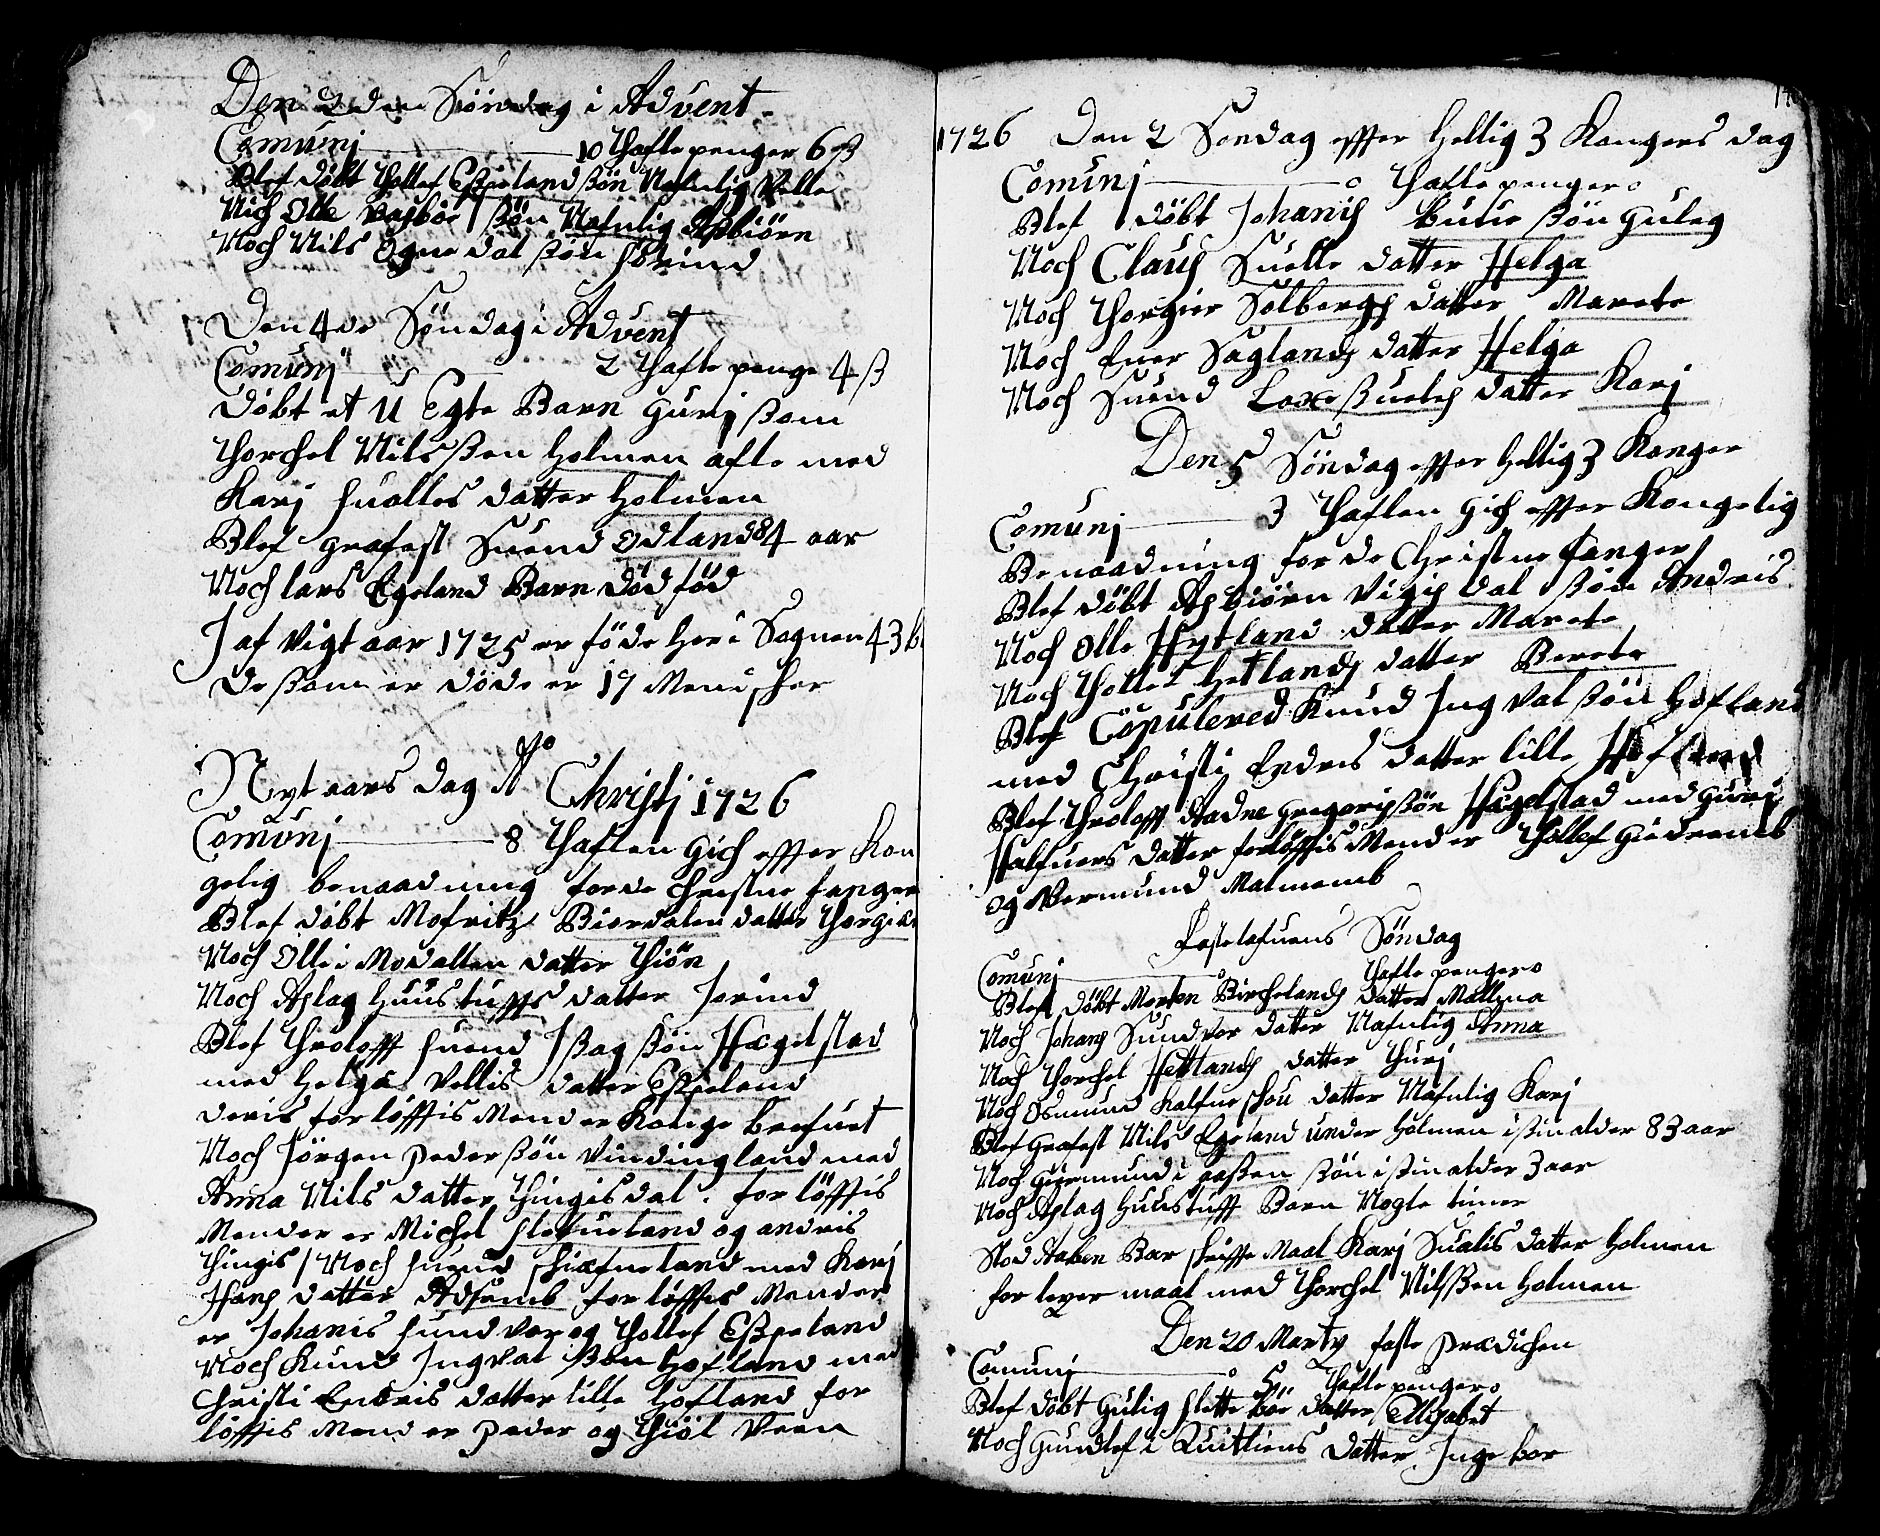 Den 2den Söndag i Advent
Comunj 10 Tafle penger 6 ß
Blef döbt Tollef Eßeland ßön Nafnlig Velle
Noch Olle Vasböe ßön Nafnlig Asbiörn
Noch Nils Øgne dal ßön
Den 4de Söndag i Advent
Comunj 2 Tafle penge 4 ß
döbt et U Egte Barn Gurj ßom
Thorchel Nilsßen Holmen afle med
Karj Sualles datter Holmen
Blef grafest Suend Ødland 84 aar
Noch lars Egeland Barn död föd
J af vigt aar 1725 er föde her i Sognen 43 b
de ßom er döde er 19 Mendscher
Nyt aars dag Ao Christj 1726
Comunj 8 Taflen gich effter Kon
gelig benaadning for de christne fanger
Blef döbt Mofritz Biordalen datter
Noch Olle i Modallen datter Thiön
Noch Aslag Huustuffs datter Jorind
Blef Troloff Suend Jßag ßön Hægelstad
med Helga Vellis datter Eßeland
deris forlöfftis Mend er
Noch Jörgen Peder ßön Vindingland med
Anna Nils datter Tingis dal. forlöfftis
Mender er Michel Sletueland og andris
Tingis / Noch Suend Skiefueland med Karj
Hans datter Adsemb forlöfftis Mender
er Johanis Sundvor og Tollef Eßeland
Noch Knud Jngval ßön Hofland med
Christi Endris datter lille Hofland for
löfftis Mend er Peder og Thiöl Veen
1726 Den 2 Sendag effter Hellig 3 Kongers dag
Comunj 0 Tafle penger 0
Blef döbt Johanis buue ßön Guleg
Noch Claus Suelle datter Helga
Noch Thorgier Solbergs datter Marete
Noch Ener Saglands datter Helga
Noch Suend Laxeßuels datter Karj
Den 5 Söndag effter Hellig 3 Konger
Comunj 3 Taflen gich effter Kongelig
Benaadning for de Christne fanger
Blef döbt Asbiörn Vigis dal ßön Andris
Noch Olle Hytland datter Marete
Noch Tollef Hetlands datter Berete
Blef Copulered Knud Jngval ßön Hofland
med Christi Endris datter lille Hofland
Blef Troloff Aadne Gregoris ßön Hægelstad med Gurj
Halfuers datter forlöfftis Mend er Tollef Giedremb
og Vermund Malmemb
Fastelafuens Söndag
Comunj 0 Tafle penger 0
Blef döbt Morten Birchelands datter Mallena
Noch Johans Sundvor datter Nafnlig Anna
Noch Thorchel Hettlands datter Turj
Noch Osmund Kalfueschou datter Nafnlig Karj
Blef Grafest Nils Egeland under Holmen i ßin alder 83 aar
Noch Guermund i aaßen ßön i ßin alder 3 aar
Noch Aslag Huustuff Barn Nogle timer
Stod Aaben Bar schriffte Maal Karj Sualis datter Holmen
for leyer maal med Thorchel Nilsßen Holmen
Den 20 Marty faste prædichen
Comunj 5 Tafle penger 0
Blef döbt Gulig slette böe datter Ellisabet
Noch Gundlef i Quitliens datter Jngebor